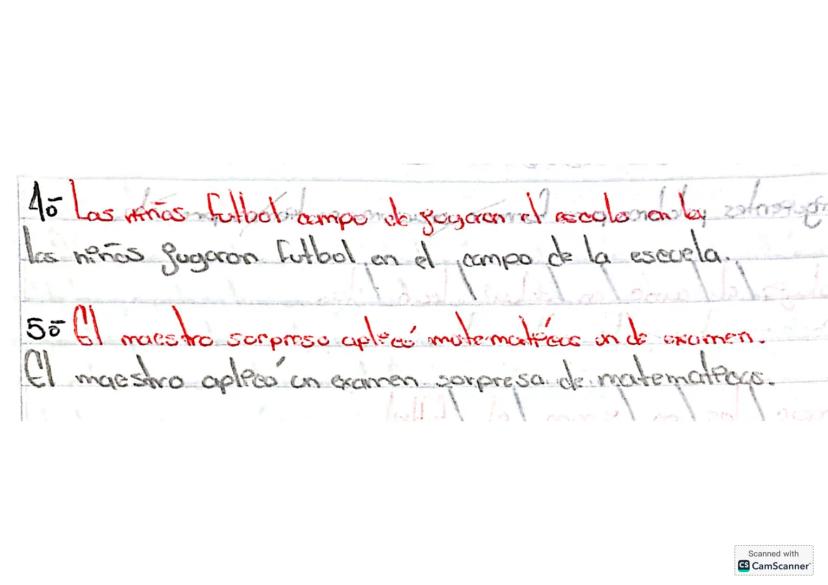 4º Las niñas futbol campo de jugaron el escuela en la
las niños jugaron futbol en el campo de la escuela.
5º El maestro sorpresa aplicó matematicas un de examen.
El maestro aplico un examen sorpresa de matematicas.
Scanned with
CS CamScanner